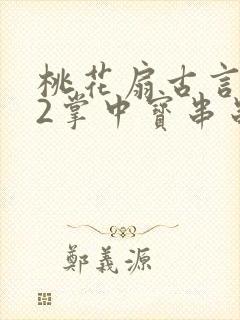 桃花扇古言
2掌中寶串
鄭義源